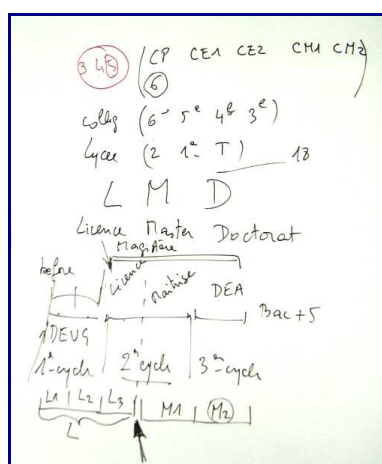 3 4 5 (CP CE1 CE2 CM1 CM2)
6
collg (6e 5e 4e 3e)
Lycee (2 1e T) 18
L M D
Licence Master Doctorat
Magistère
before Licence Maitrise DEA
Bac+5
DEUG
1er cycle 2e cycle 3e cycle
L1 L2 L3 M1 M2
L